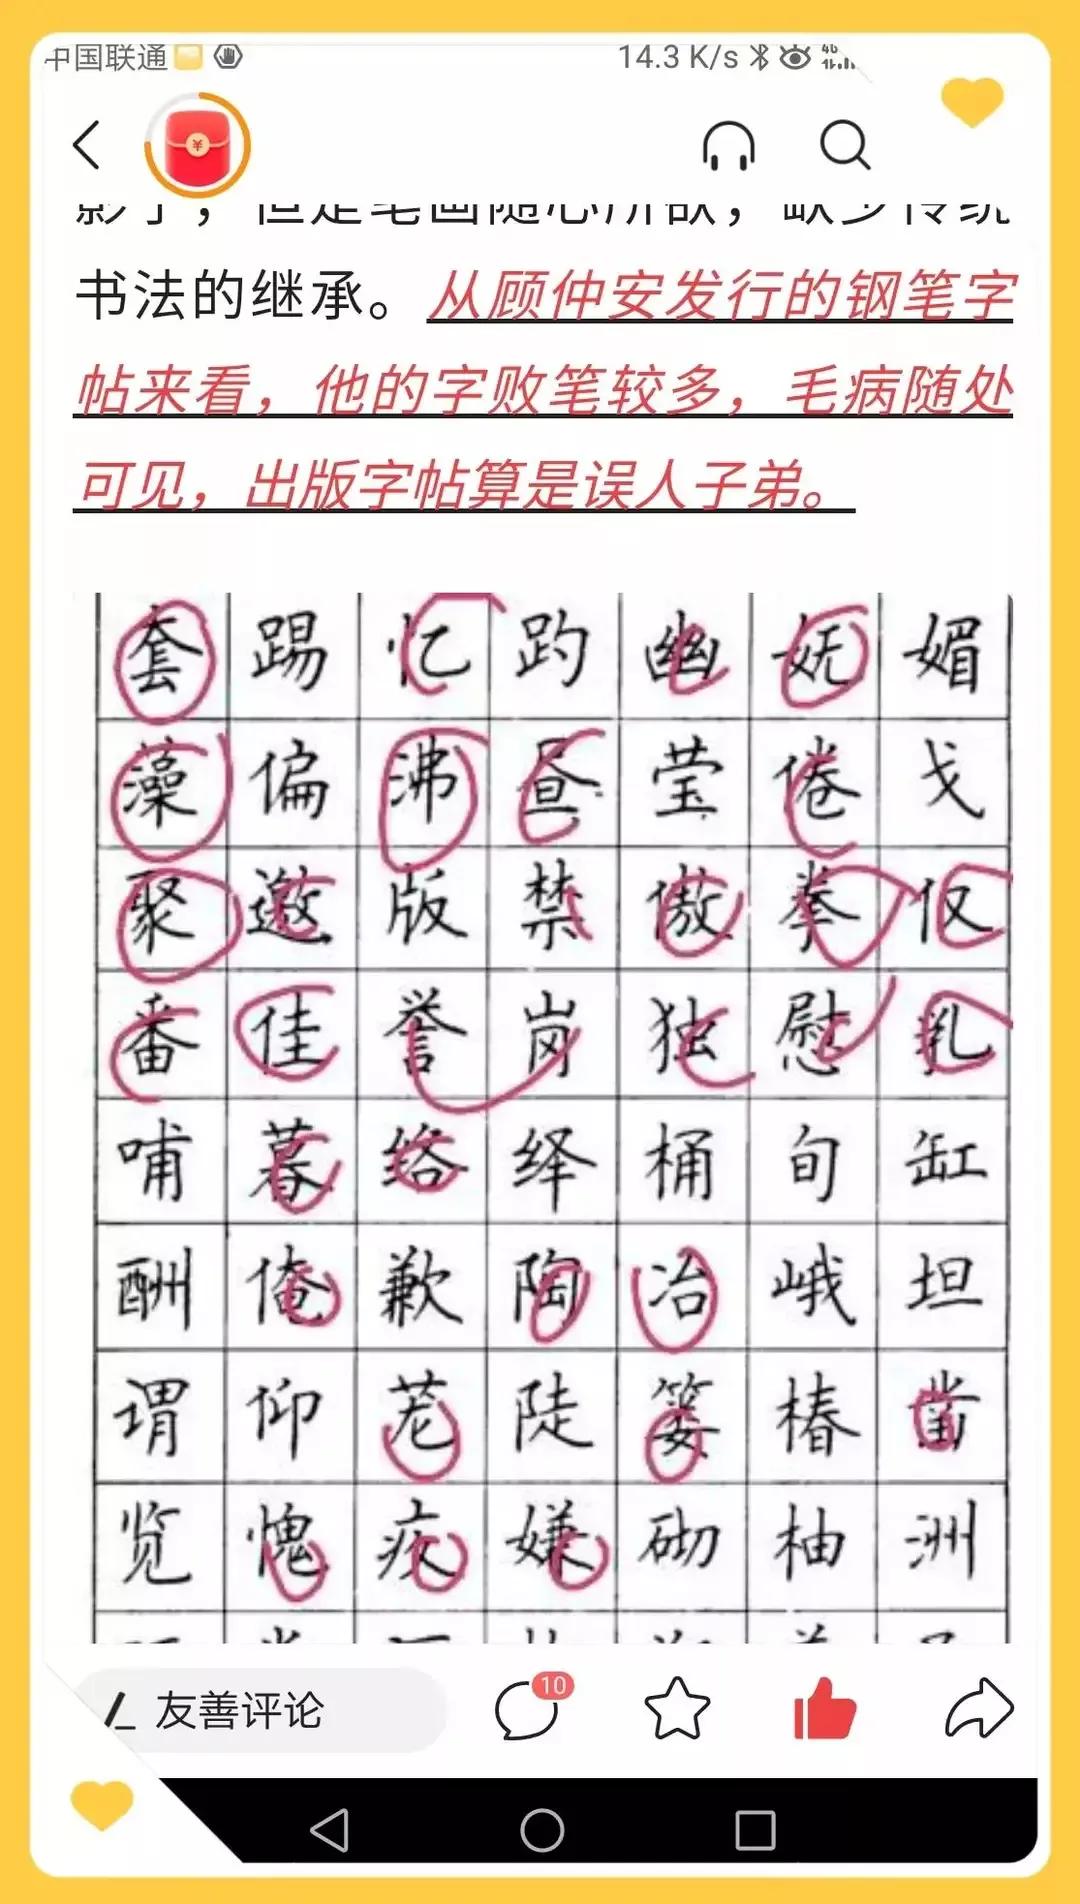 中国联通
14.3 K/s
书法的继承。从顾仲安发行的钢笔字
帖来看，他的字败笔较多，毛病随处
可见，出版字帖算是误人子弟。
套 踢 忆 趵 幽 妩 媚
藻 偏 沸 昼 莹 倦 戈
聚 邀 版 禁 傲 拳 仅
番 佳 誉 岗 独 慰 乳
哺 暮 络 绎 桶 旬 缸
酬 俺 歉 陶 冶 峨 坦
谓 仰 苍 陡 篓 椿 凿
览 愧 疚 嫌 砌 柚 洲
友善评论
10